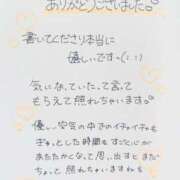 ありがとうございました。
書してくださり本当に
優しいです(;;)
気になっていたって言って
もらえて照れちゃいます。
優しい空気の中でのイチャイチャも
ぎゅっとした時間もすっごく心が
あたたかくなって思い出すとまだ
ちょっと照れちゃいますね